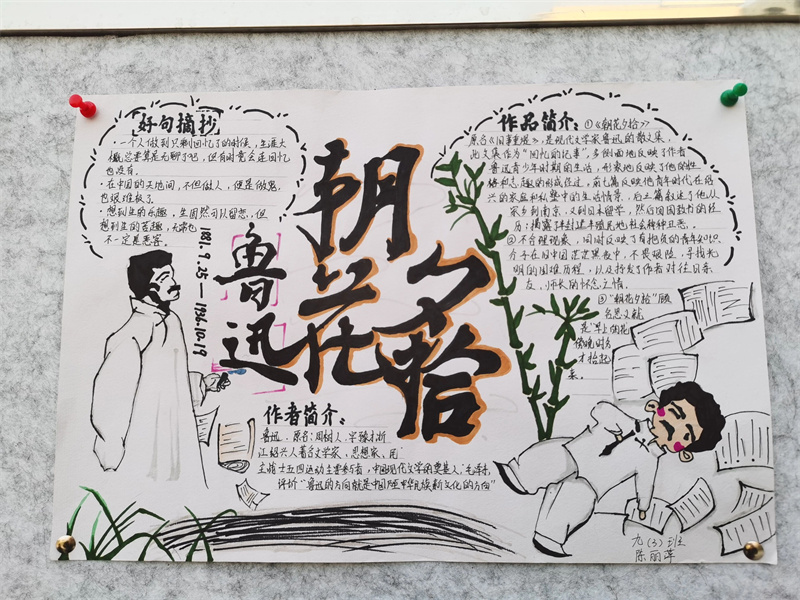 好句摘抄
·一个人做到只剩回忆了的时候，生涯大
概总要算是无聊了吧，但有时竟会连回忆
也没有。
·在中国的天地间，不但做人，便是做鬼，
也艰难极了。
·想到生的乐趣，生固然可以留恋，但
想到生的苦趣，无常也
不一定是恶客。
1881.9.25—1936.10.19
鲁迅
朝花夕拾
作品简介：①《朝花夕拾》
原名《旧事重提》，是现代文学家鲁迅的散文集，
此文集作为“回忆的记事”，多侧面地反映了作者
鲁迅青少年时期的生活，形象地反映了他的性
格和志趣的形成经过，前七篇反映他青年时代在绍
兴的家庭和私塾中的生活情景，后三篇叙述了他从
家乡到南京，又到日本留学，然后回国教书的经
历；揭露了半封建半殖民地社会种种丑恶。
②不合理现象，同时反映了有抱负的青年知识
分子在旧中国茫茫黑夜中，不畏艰险，寻找光
明的困难历程，以及抒发了作者对往日亲
友、师长的怀念之情。
③“朝花夕拾”顾
名思义就
是“早上的花
傍晚时分
才拾起
来。
作者简介：
鲁迅，原名：周树人，字豫才，浙
江绍兴人著名文学家，思想家，民
主战士五四运动主要参与者，中国现代文学的奠基人，毛泽东，
评价“鲁迅的方向就是中国 中华民族新文化的方向”
九（3）班
陈丽萍